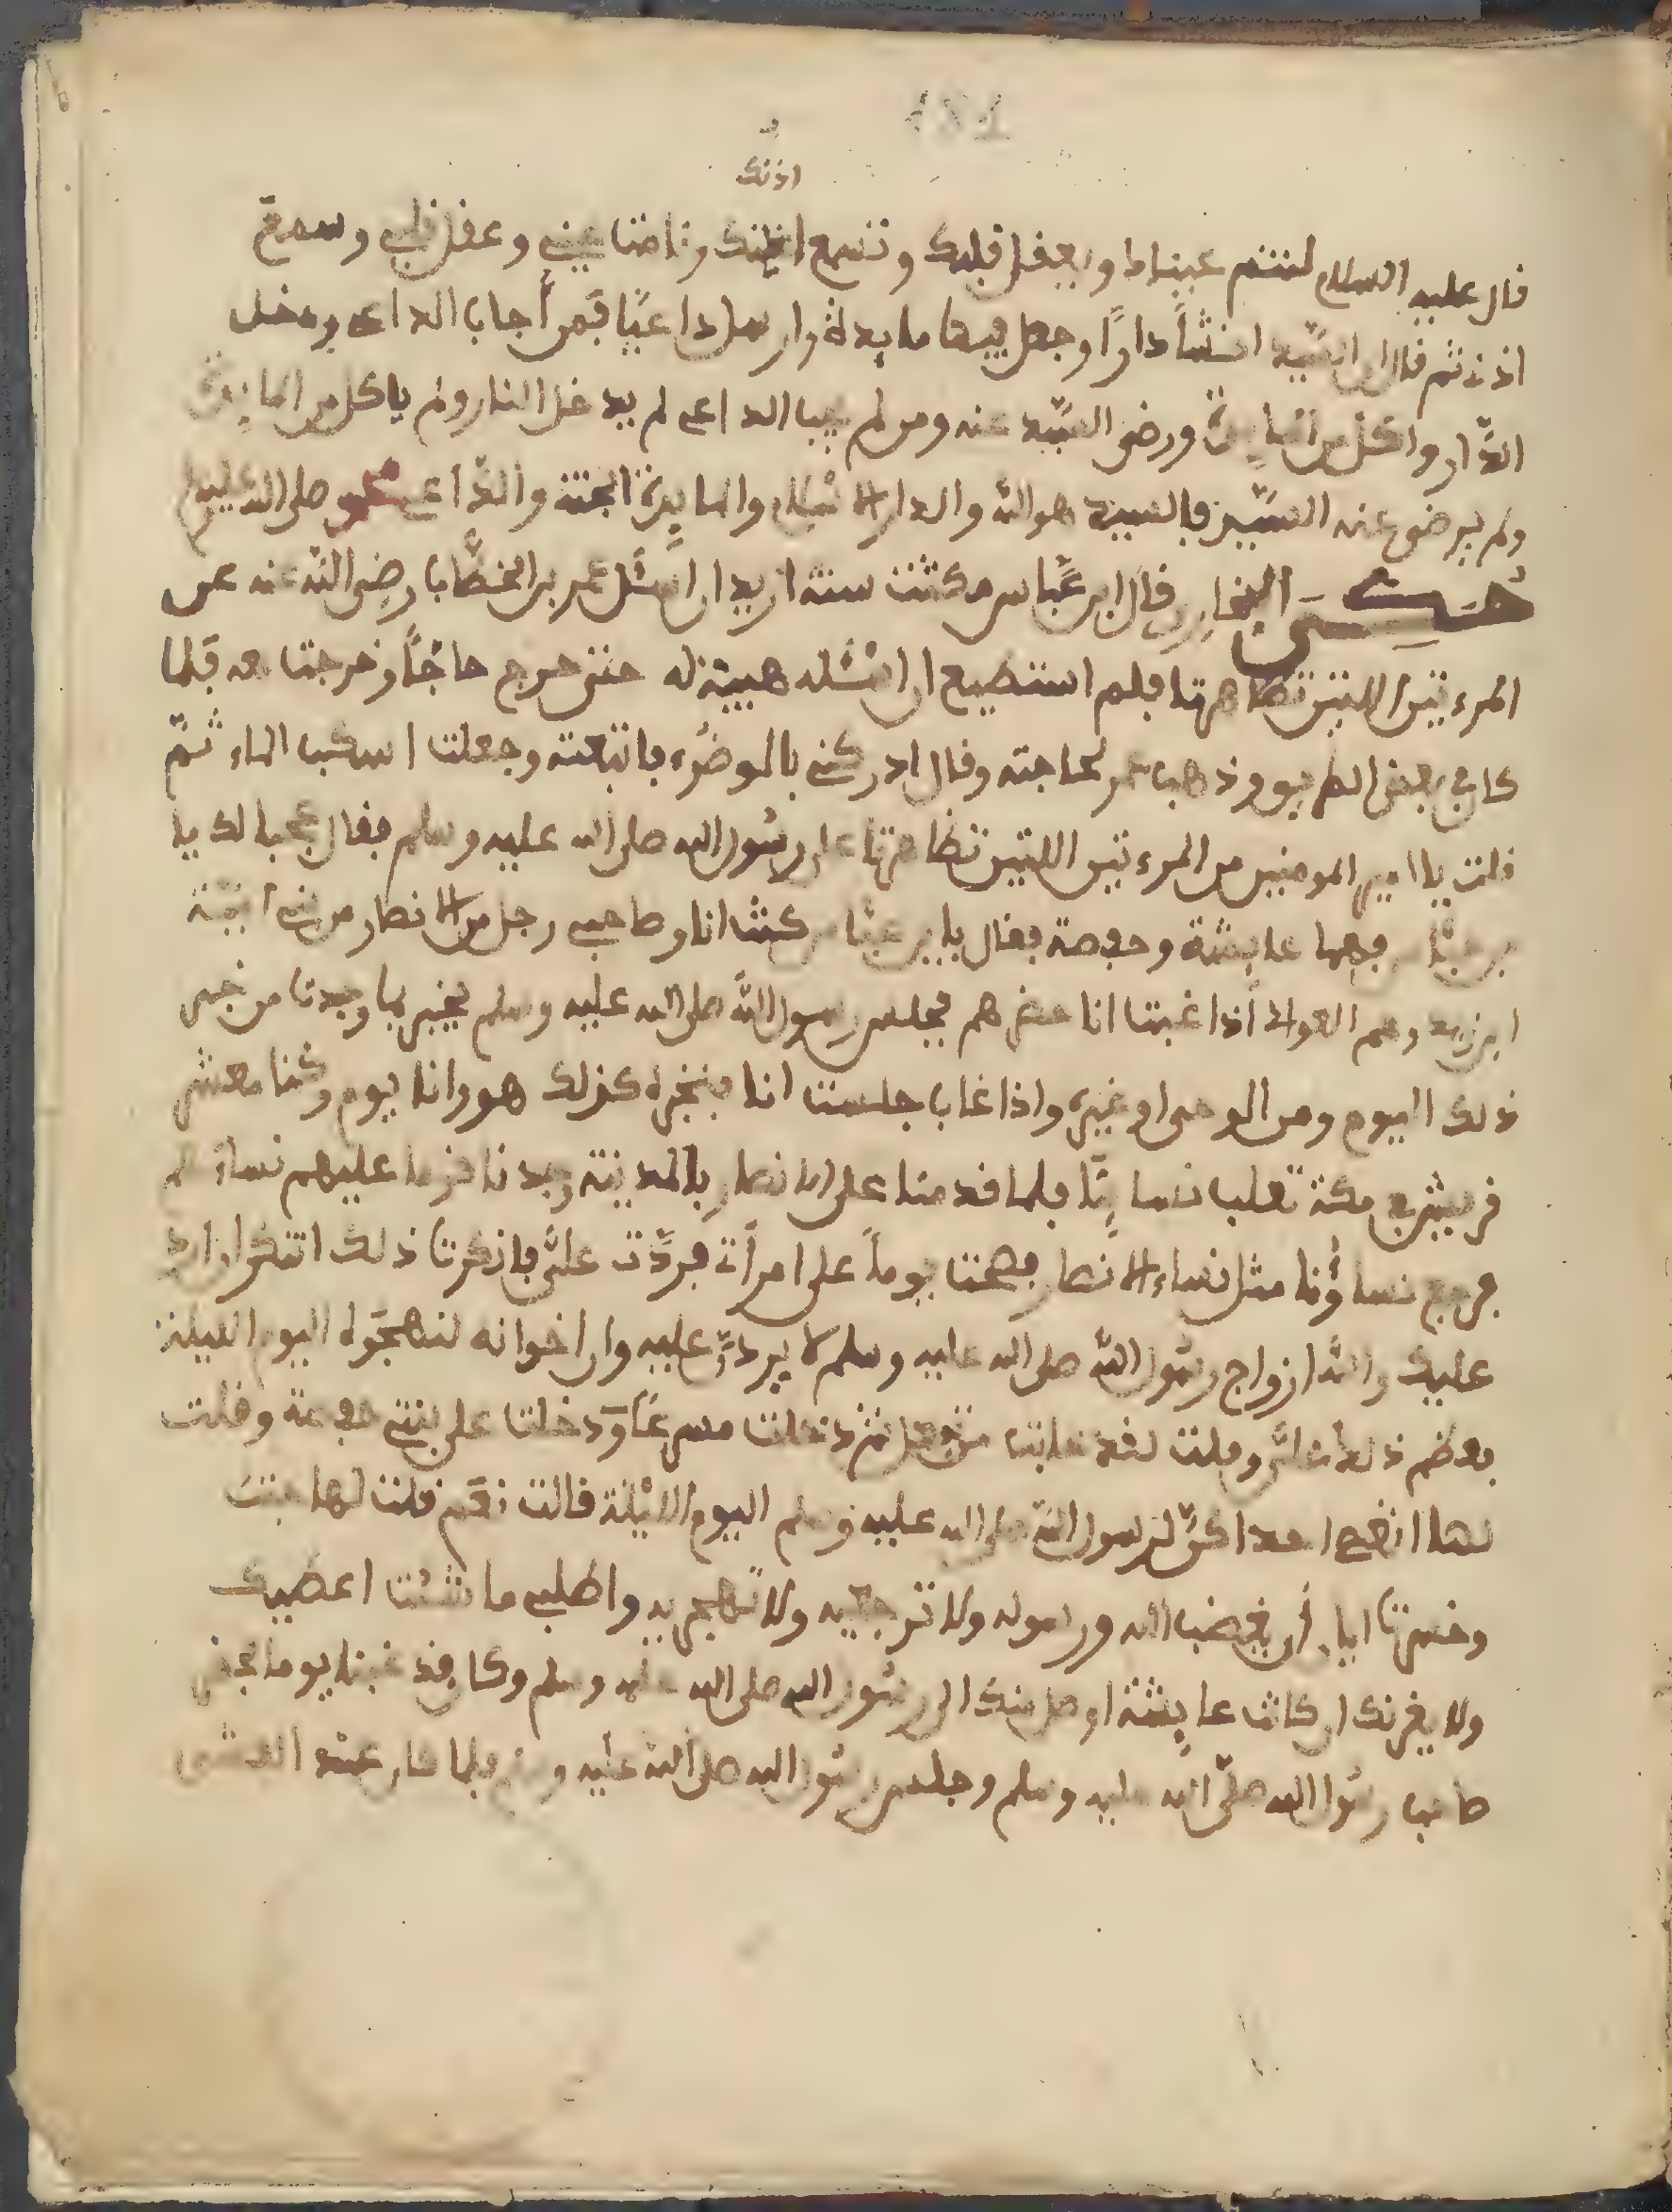 اذنك
قال عليه السلام لتنم عيناك ويعقل قلبك وتسمع اذنك ونامت عيني وعقل قلبي وسمع
اذن ثم قال ان السيد انشأ دارًا وجعل فيها مايدة وارسل داعيًا فمن أجاب الداعي ودخل
الدّار واكل من المايدة ورضى السيّد عنه ومن لم يجب الداعي لم يدخل الدار ولم ياكل من المايدة
ولم يرضى عنه السيّد فالسيد هو الله والدار الاسلام والمايدة الجنة والدّاعي محمد صلى الله عليه وسلم
البخاري قال ابن عبّاس مكثت سنة اريد ان اسئل عمر بن الخطّاب رضي الله عنه عن
المرءتين اللتين تظاهرتا فلم استطيع ان اسئله هيبة له حتى خرج حاجًّا وخرجت معه فلما
كان في بعض الطريق وذهب عمر لحاجته وقال ادركني بالوضوء فاتبعته وجعلت اسكب الماء ثمّ
قلت يا امير المومنين من المرءتين اللتين تظاهرتا على رسول الله صلى الله عليه وسلم فقال عجبا لك يا
بن عبّاس فهما عايشة وحفصة فقال يابن عبّاس كنت انا وصاحبي رجل من الانصار من بني اميّة
ابن زيد وهم العوالي اذا غبت انا حضر هم مجلس رسول الله صلى الله عليه وسلم يخبر بما وجدنا من خبر
ذلك اليوم ومن الوحى او غيره واذا غاب جلست انا فنخبره كذلك هو وانا يوم وكنا معشر
قريش في مكة تغلب نساءنا فلما قدمنا على الانصار بالمدينة وجدنا قوما عليهم نساؤهم
فرجع نساؤنا مثل نساء الانصار فصحت يوماً على امرأتي فردّت عليّ فانكرت ذلك اتنكر ان ارد
عليك والله ازواج رسول الله صلى الله عليه وسلم لا يردّ عليه وان اخوانه لتهجره اليوم الليلة
فعظم ذلك عليّ وقلت لقد خابت من فعل ثم دخلت مسرعًا ودخلت على بنتي حفصة وقلت
لها اتغضب احداكنّ لرسول الله صلى الله عليه وسلم اليوم الليلة قالت نعم قلت لها خبت
وخسرت اياك أن يغضب الله ورسوله ولا تراجعيه ولا تهجريه واطلبي ما شئت اعطيك
ولا يغرنك ان كانت عايشة اوصل منك الى رسول الله صلى الله عليه وسلم وكان قد غبنا يوما نحن
صاحب رسول الله صلّى الله عليه وسلم وجلس رسول الله صلى الله عليه وسلم فلما كان عند العشى